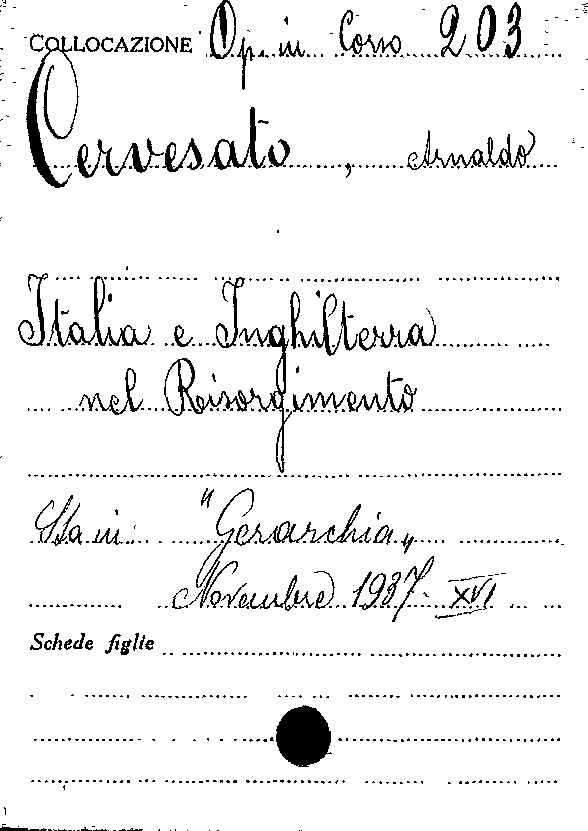 COLLOCAZIONE Op. in Corso 203
Cervesato, Arnaldo
Italia e Inghilterra
nel Risorgimento
Sta in: "Gerarchia„
Novembre 1937 - XVI
Schede figlie